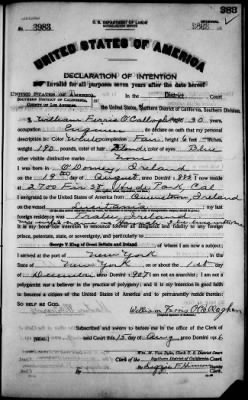 383
U. S. DEPARTMENT OF LABOR
NATURALIZATION SERVICE
No. 3983
UNITED STATES OF AMERICA
DECLARATION OF INTENTION
Invalid for all purposes seven years after the date hereof
UNITED STATES OF AMERICA,
In the District Court
SOUTHERN DISTRICT OF CALIFORNIA,
COUNTY OF LOS ANGELES
of the United States, Southern District of California, Southern Division.
I, William Ferris O'Callaghan, aged 30 years,
occupation, do declare on oath that my personal
description is: Color White, complexion Fair, height 6 feet inches,
weight 190 pounds, color of hair Blond, color of eyes Blue
other visible distinctive marks None
I was born in Ireland
on the day of August, anno Domini 1; I now reside
at 2700 Hyde Park, Cal
I emigrated to the United States of America from Ireland
on the vessel; my last
foreign residence was Tralee, Ireland
It is my bona fide intention to renounce forever all allegiance and fidelity to any foreign
prince, potentate, state, or sovereignty, and particularly to
George V King of Great Britain and Ireland, of whom I am now a subject;
I arrived at the port of New York
State of New York, on or about the 1st day
of December, anno Domini 1907; I am not an anarchist; I am not a
polygamist nor a believer in the practice of polygamy; and it is my intention in good faith
to become a citizen of the United States of America and to permanently reside therein:
SO HELP ME GOD.
William Ferris O'Callaghan
Subscribed and sworn to before me in the office of the Clerk of
said Court this 15 day of Aug, anno Domini 191
Wm. M. Van Dyke, Clerk U. S. District Court
Clerk of the Southern District of California Court.